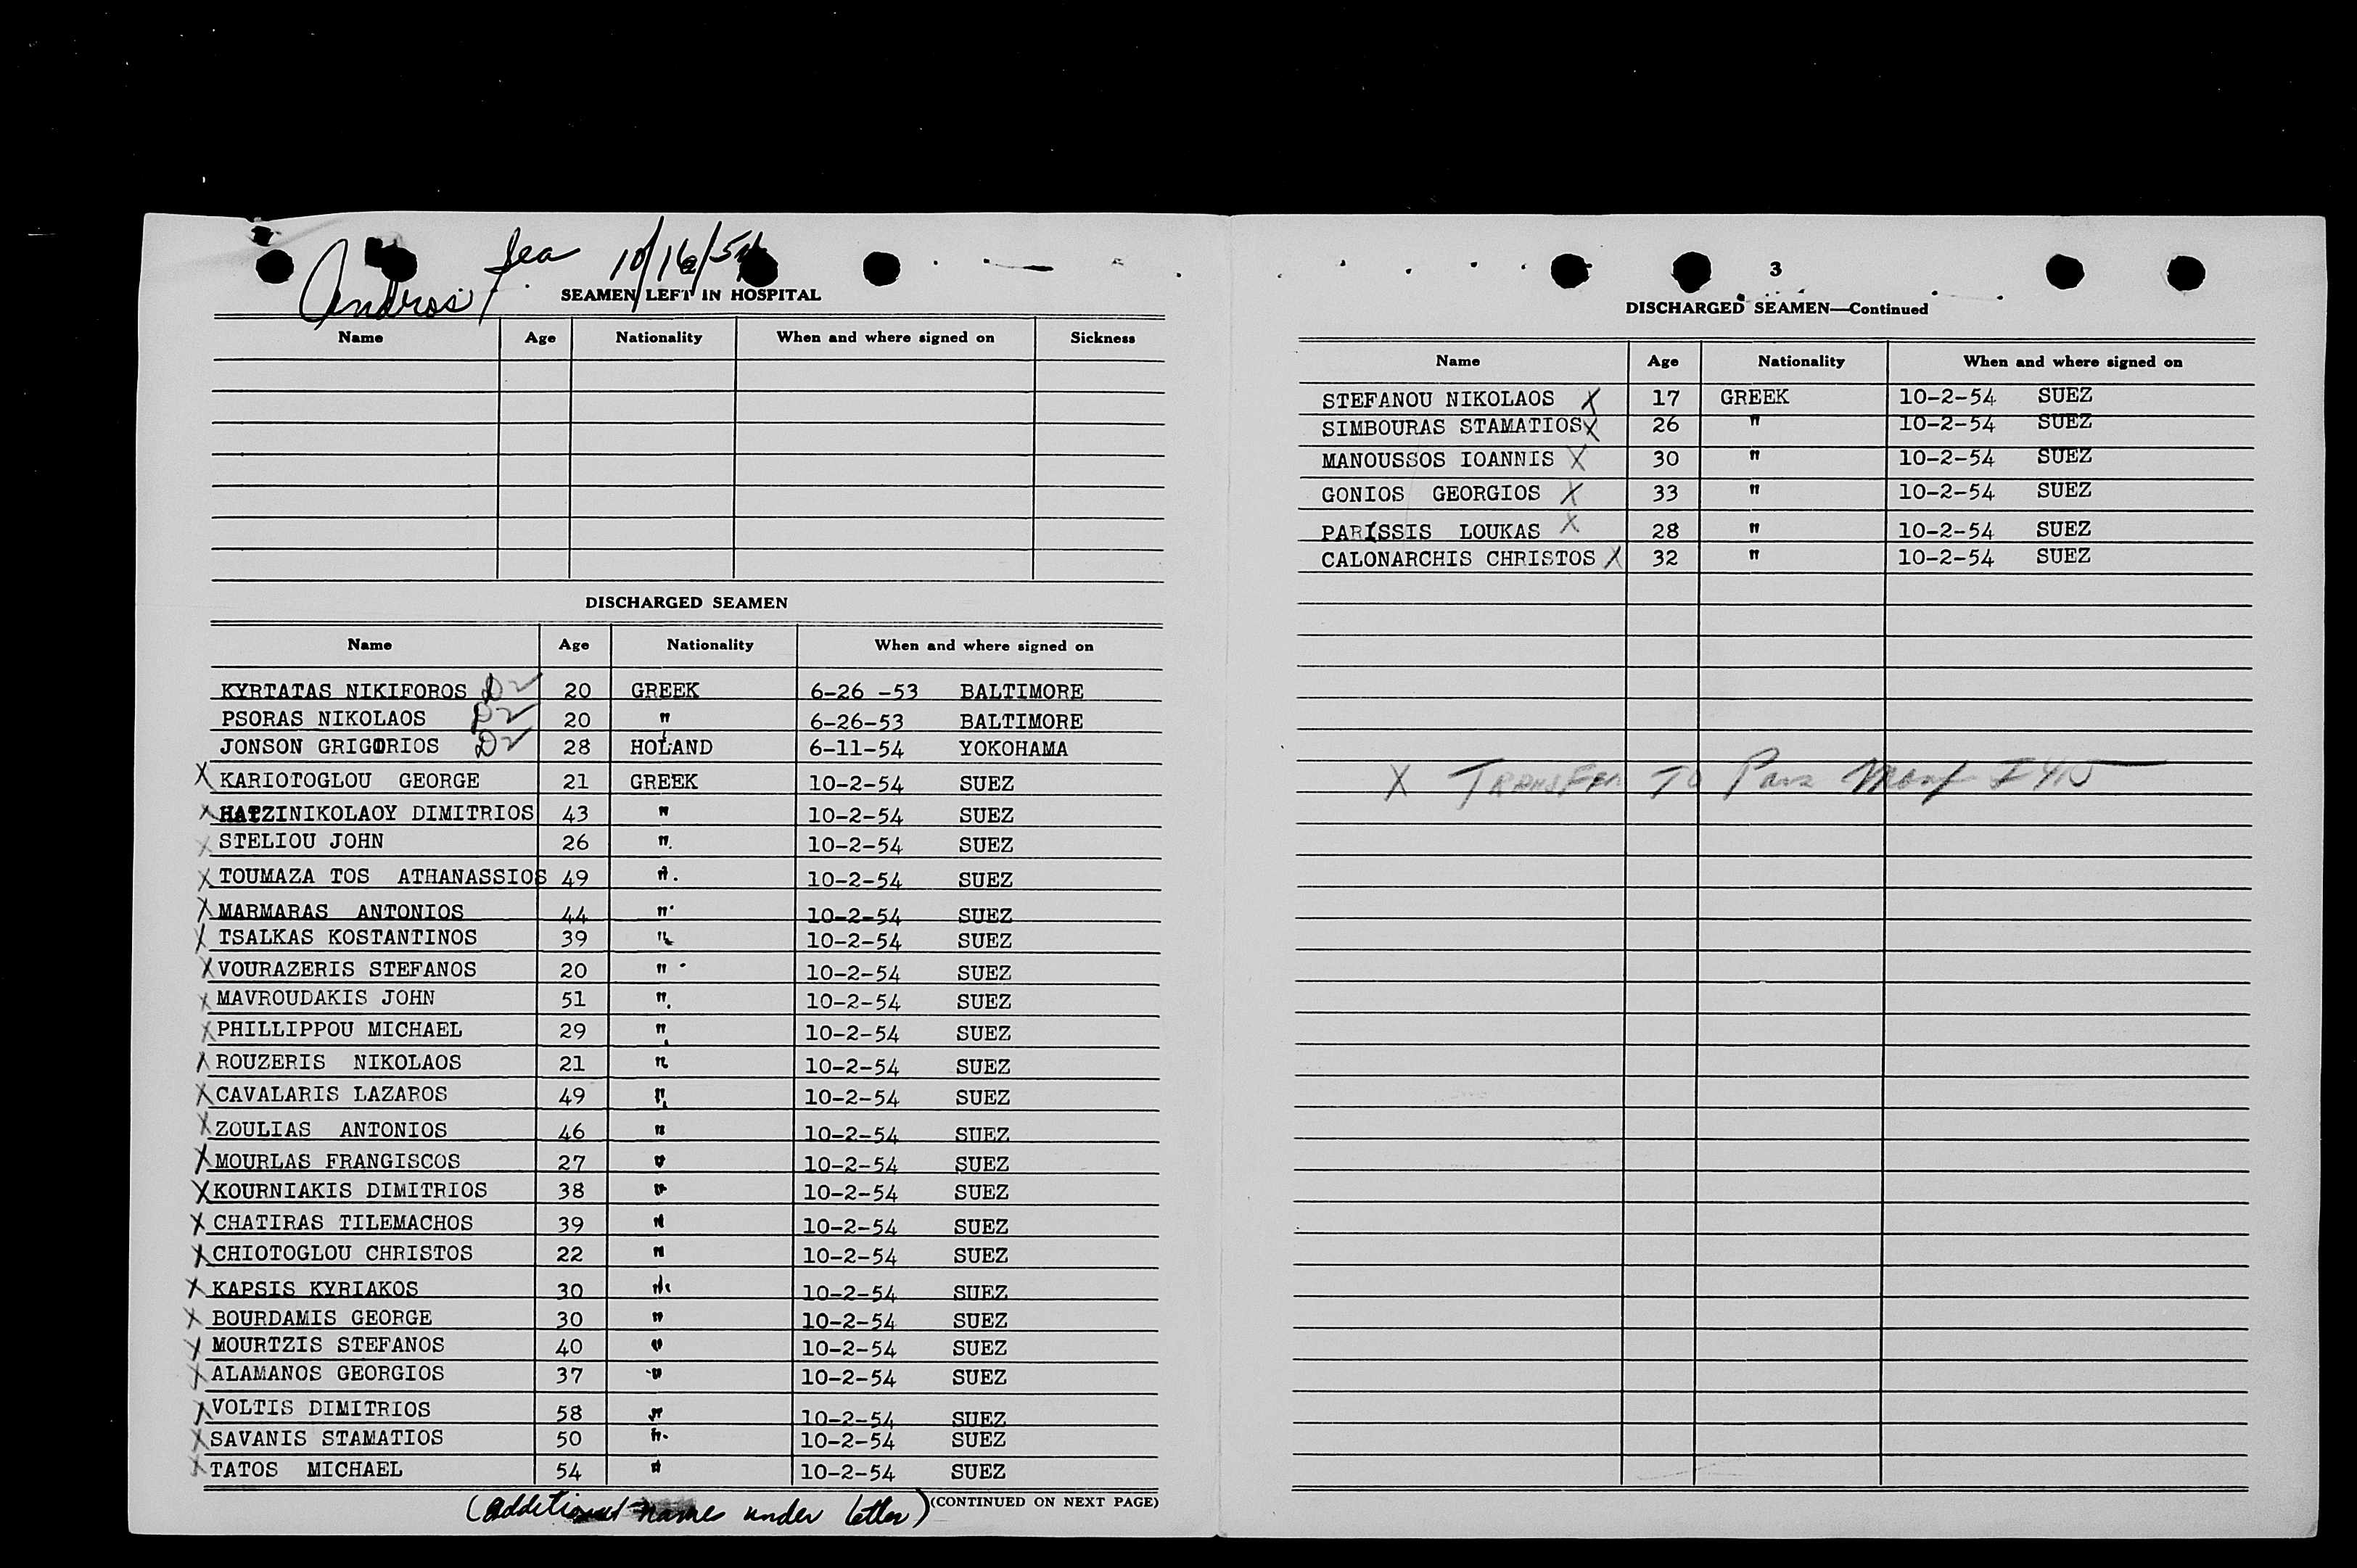 Andros Sea 10/16/54
SEAMEN LEFT IN HOSPITAL
Name Age Nationality When and where signed on Sickness
DISCHARGED SEAMEN
Name Age Nationality When and where signed on
KYRTATAS NIKIFOROS D2 20 GREEK 6-26 -53 BALTIMORE
PSORAS NIKOLAOS D2 20 " 6-26-53 BALTIMORE
JONSON GRIGORIOS D2 28 HOLAND 6-11-54 YOKOHAMA
X KARIOTOGLOU GEORGE 21 GREEK 10-2-54 SUEZ
X HATZINIKOLAOY DIMITRIOS 43 " 10-2-54 SUEZ
X STELIOU JOHN 26 " 10-2-54 SUEZ
X TOUMAZA TOS ATHANASSIOS 49 " 10-2-54 SUEZ
X MARMARAS ANTONIOS 44 " 10-2-54 SUEZ
X TSALKAS KOSTANTINOS 39 " 10-2-54 SUEZ
X VOURAZERIS STEFANOS 20 " 10-2-54 SUEZ
X MAVROUDAKIS JOHN 51 " 10-2-54 SUEZ
X PHILLIPPOU MICHAEL 29 " 10-2-54 SUEZ
X ROUZERIS NIKOLAOS 21 " 10-2-54 SUEZ
X CAVALARIS LAZAROS 49 " 10-2-54 SUEZ
X ZOULIAS ANTONIOS 46 " 10-2-54 SUEZ
X MOURLAS FRANGISCOS 27 " 10-2-54 SUEZ
X KOURNIAKIS DIMITRIOS 38 " 10-2-54 SUEZ
X CHATIRAS TILEMACHOS 39 " 10-2-54 SUEZ
X CHIOTOGLOU CHRISTOS 22 " 10-2-54 SUEZ
X KAPSIS KYRIAKOS 30 " 10-2-54 SUEZ
X BOURDAMIS GEORGE 30 " 10-2-54 SUEZ
X MOURTZIS STEFANOS 40 " 10-2-54 SUEZ
X ALAMANOS GEORGIOS 37 " 10-2-54 SUEZ
X VOLTIS DIMITRIOS 58 " 10-2-54 SUEZ
X SAVANIS STAMATIOS 50 " 10-2-54 SUEZ
X TATOS MICHAEL 54 " 10-2-54 SUEZ
(additional names under letter) (CONTINUED ON NEXT PAGE)
3
DISCHARGED SEAMEN—Continued
Name Age Nationality When and where signed on
STEFANOU NIKOLAOS X 17 GREEK 10-2-54 SUEZ
SIMBOURAS STAMATIOS X 26 " 10-2-54 SUEZ
MANOUSSOS IOANNIS X 30 " 10-2-54 SUEZ
GONIOS GEORGIOS X 33 " 10-2-54 SUEZ
PARISSIS LOUKAS X 28 " 10-2-54 SUEZ
CALONARCHIS CHRISTOS X 32 " 10-2-54 SUEZ
X TRANSFER TO Pass Manf I 415